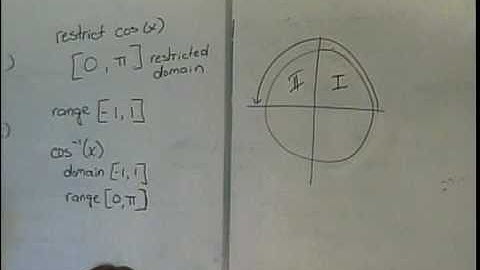 restrict cos(x)
) [0, π] restricted
domain
range [-1, 1]
)
cos⁻¹(x)
domain [-1, 1]
range [0, π]
II I